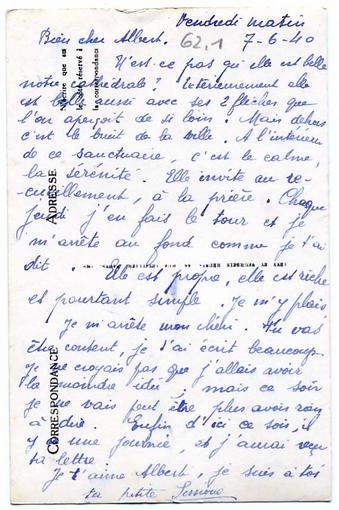 Vendredi matin
Bien cher Albert. 62,1 7-6-40
N'est-ce pas qu'elle est belle
notre Cathédrale? Intérieurement elle
est belle aussi avec ses 2 flèches que
l'on aperçoit de si loin. Mais dehors
c'est le bruit de la ville. A l'intérieur
de ce sanctuaire, c'est le calme,
la sérénité. Elle invite au re-
cueillement, à la prière. Chaque
jeudi j'en fais le tour et je
m'arrête au fond comme je t'ai
dit. Elle est propre, elle est riche
et pourtant simple. Je m'y plais
Je m'arrête mon chéri. Tu vas
être content, je t'ai écrit beaucoup.
Je ne croyais pas que j'allais avoir
la moindre idée, mais ce soir
je ne vais peut être plus avoir rien
à dire. Enfin d'ici ce soir, il
y a une journée, et j'aurai reçu
ta lettre.
Je t'aime Albert, je suis à toi
ta petite
ADRESSE
le côté réservé à
la correspondance
CORRESPONDANCE